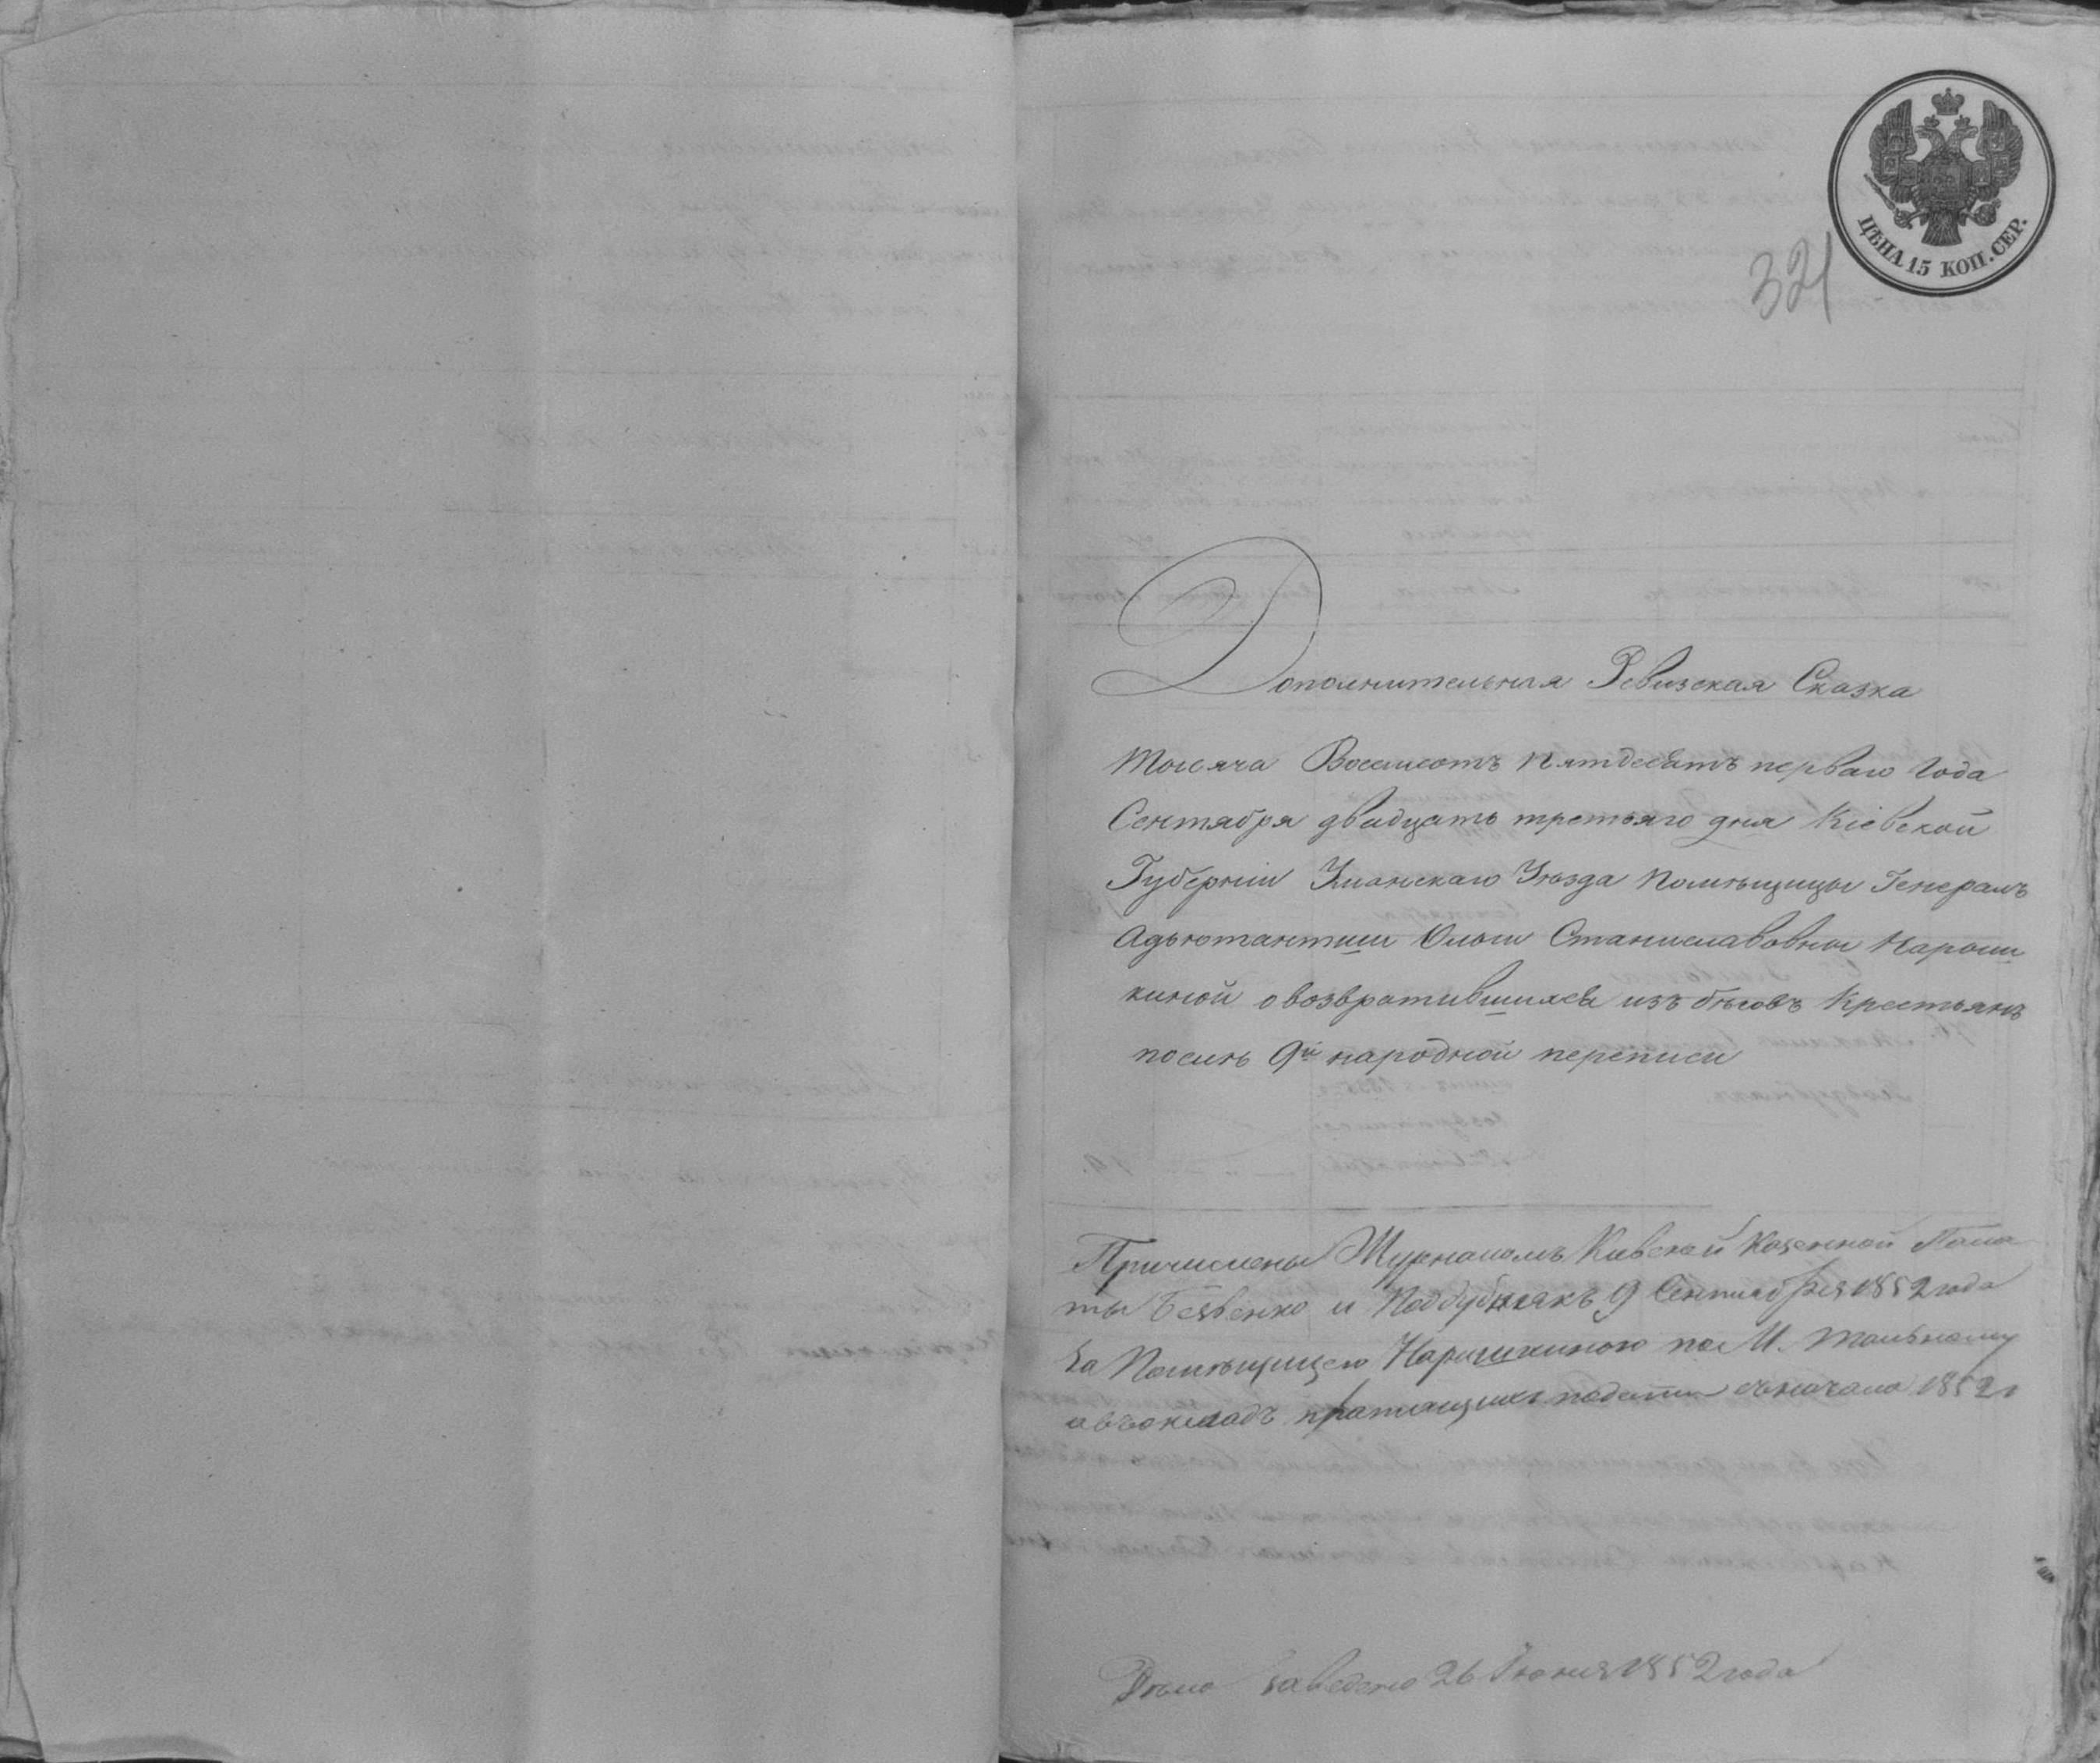 ЦѢНА 15 КОП. СЕР.
321
Дополнительная Ревизская Сказка
Тысяча Восемсотъ Пятдесятъ перваго Года
Сентября двадцать третьяго дня Кіевской
Губерніи Уманскаго Уѣзда Помѣщицы Генералъ
Адъютантши Ольги Станиславовны Нарыш
киной о возвратившихся изъ бѣговъ Крестьянъ
послѣ 9й народной переписи
Причислены Журналомъ Кіевской Казенной Пала
ты и Поддубнякъ 9 Сентября 1852 года
За Помѣщицею Нарышкиною по М. Тальному
въ окладъ платящихъ подати съ начала 1852 г
Дѣло заведено 26 Іюня 1852 года